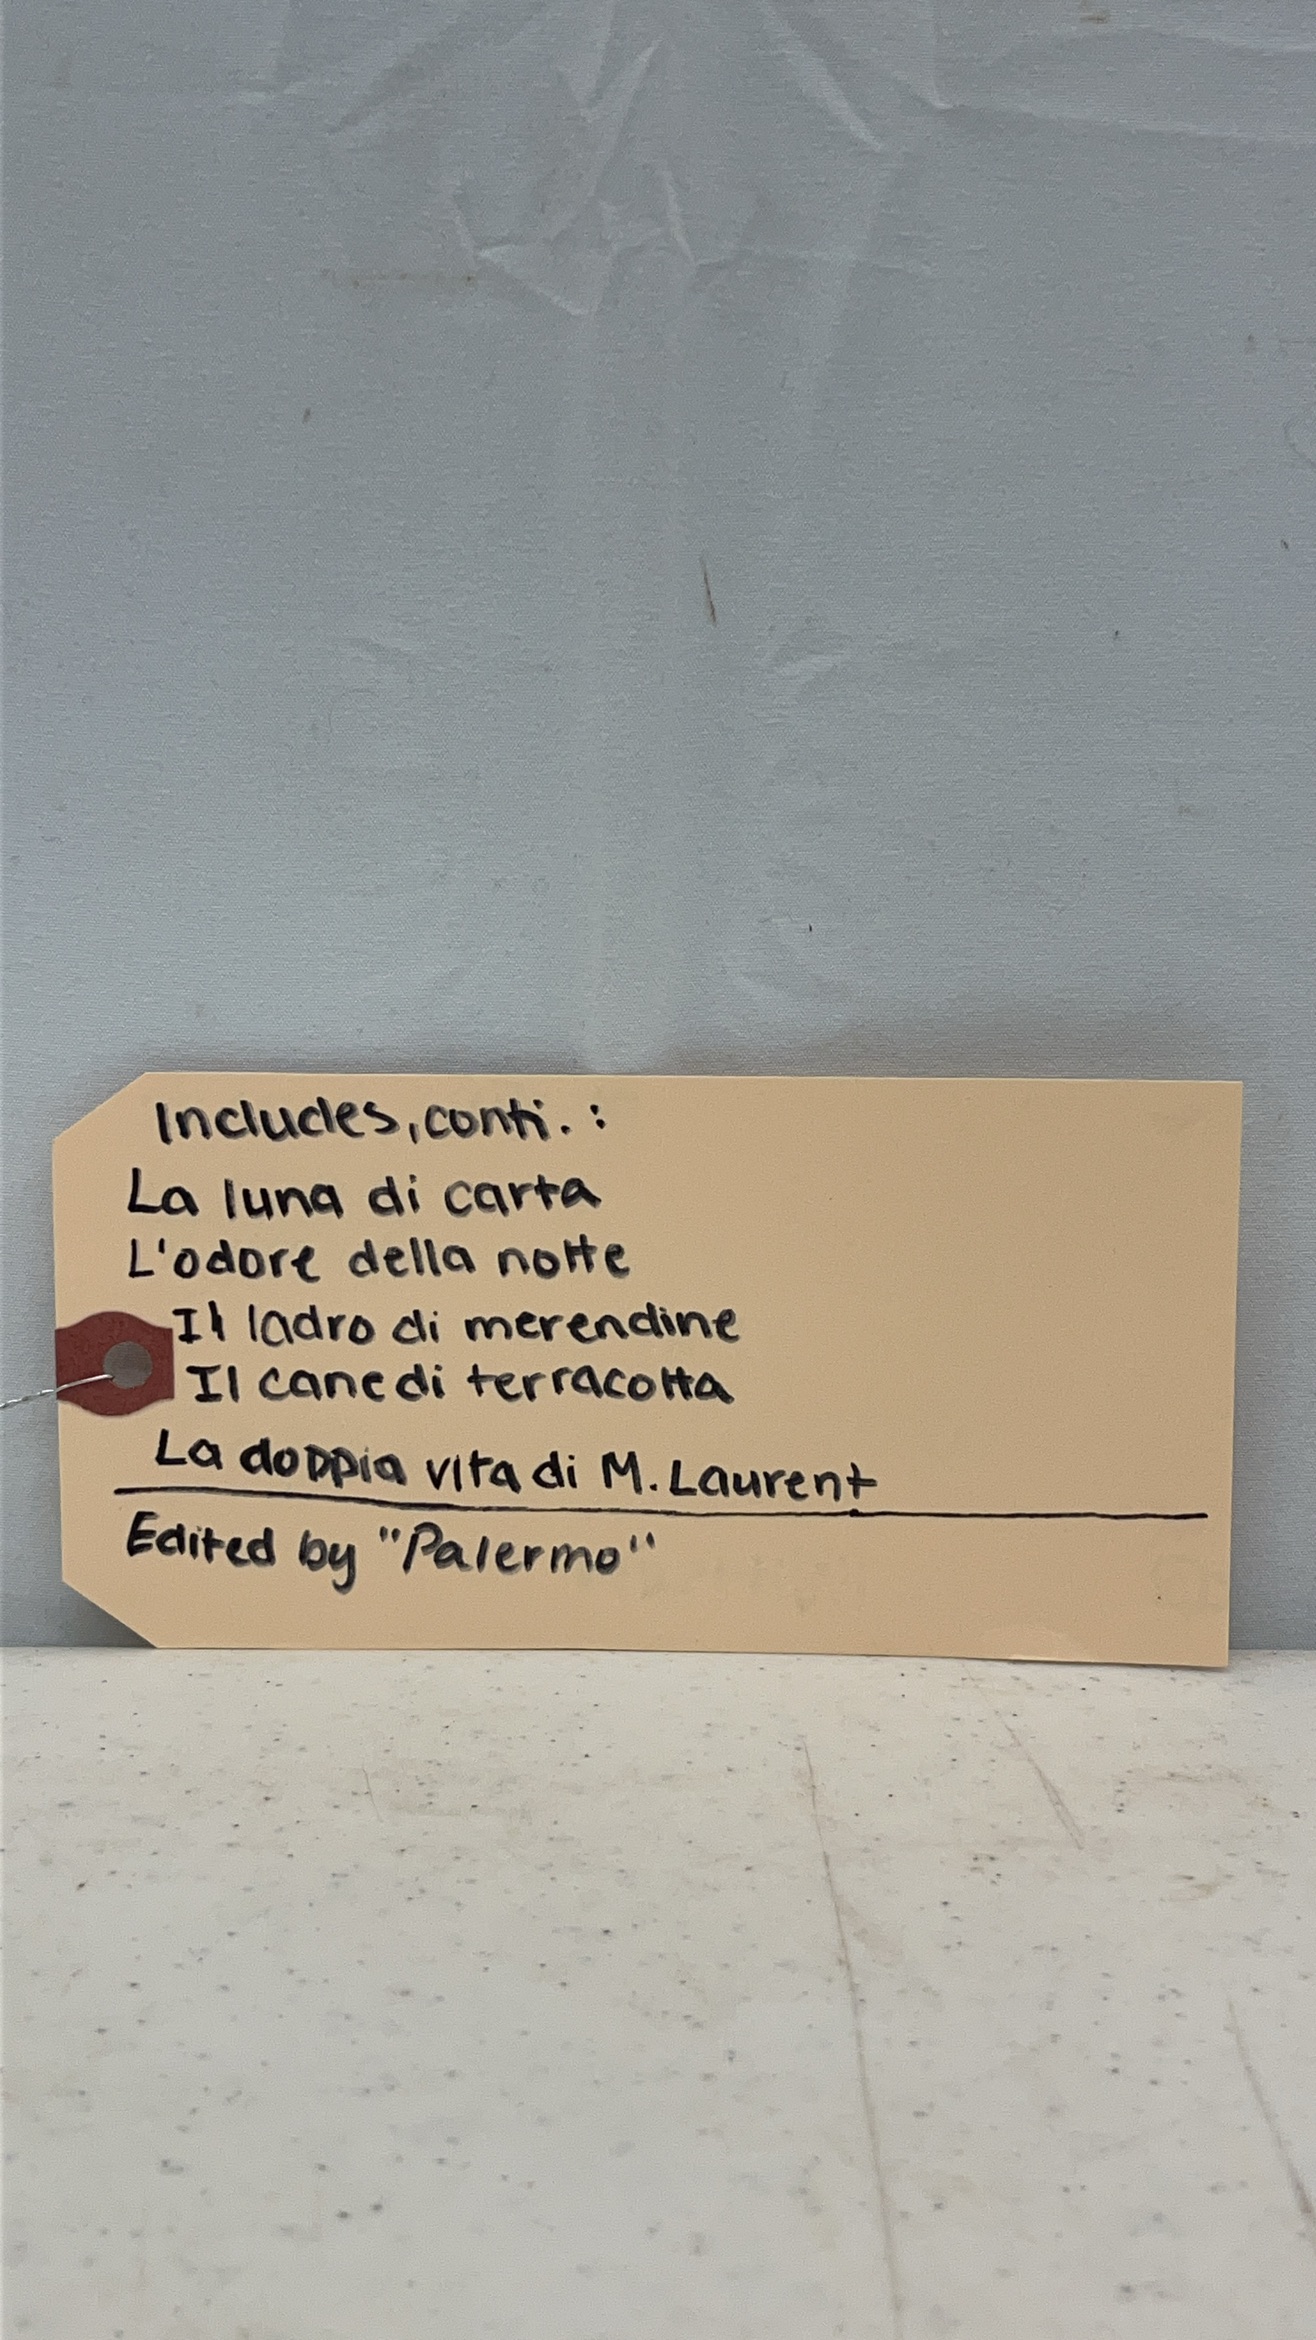 Includes, conti. :
La luna di carta
L'odore della notte
Il ladro di merendine
Il cane di terracotta
La doppia vita di M. Laurent
Edited by "Palermo"